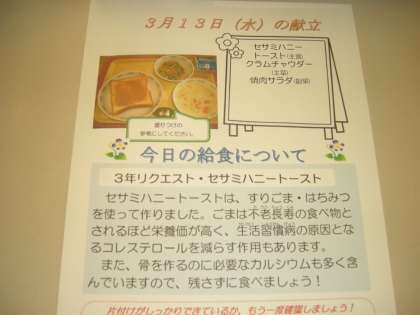 ３月１３日（水）の献立
セサミハニー
トースト(主食)
クラムチャウダー
(主菜)
焼肉サラダ(副菜)
盛りつけの
参考にしてください。
今日の給食について
３年リクエスト・セサミハニートースト
セサミハニートーストは、すりごま・はちみつ
を使って作りました。ごまは不老長寿の食べ物と
されるほど栄養価が高く、生活習慣病の原因とな
るコレステロールを減らす作用もあります。
また、骨を作るのに必要なカルシウムも多く含
んでいますので、残さずに食べましょう！
片付けがしっかりできているか、もう一度確認しましょう！